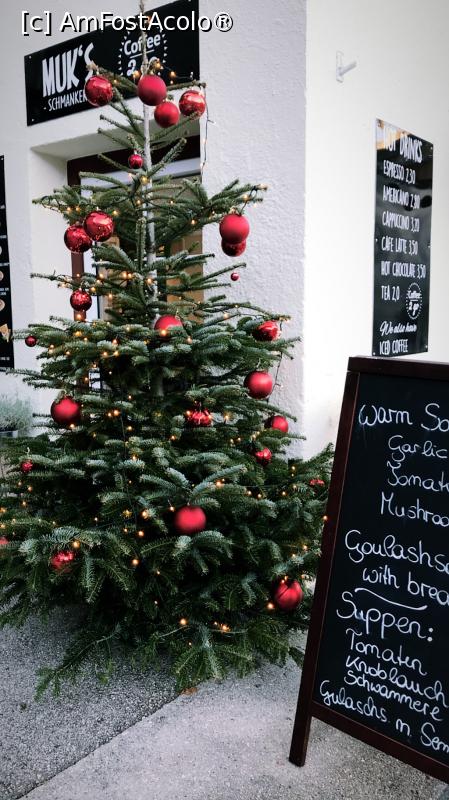 [c] AmFostAcolo®
MUK'S
Coffee
HOT DRINKS
ESPRESSO 2,30
AMERICANO 2,80
CAPPUCCINO 3,20
CAFE LATTE 3,50
HOT CHOCOLATE 3,50
TEA 2,0
Coffee
We also have
ICED COFFEE
warm So
Garlic
Tomat
Mushroo
Goulashs
with brea
Suppen:
Tomaten
Knoblauch
Schwammerl
Gulaschs. m. Sem